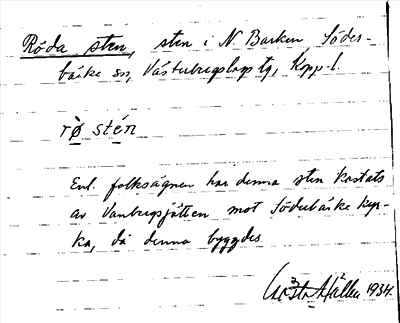 Röda sten, sten i N. Barken, Söder-
bärke sn, Västerbergslags tg, Kopp. l.
rö̀ stén
Enl. folksägnen har denna sten kastats
av Vanbergsjätten mot Söderbärke kyr-
ka, då denna byggdes
1934.